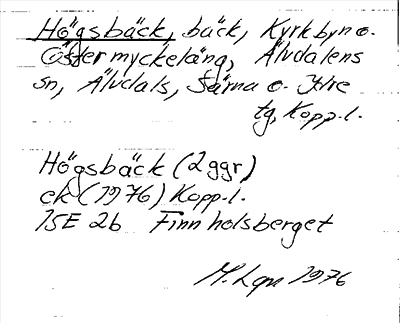 Högsbäck, bäck, Kyrkbyn o.
Östermyckeläng, Älvdalens
sn, Älvdals, Särna o. Idre
tg, Kopp. l.
Högsbäck (2 ggr)
ek (1976) Kopp. l.
15E 2b Finnholsberget
M. Lgn 1976